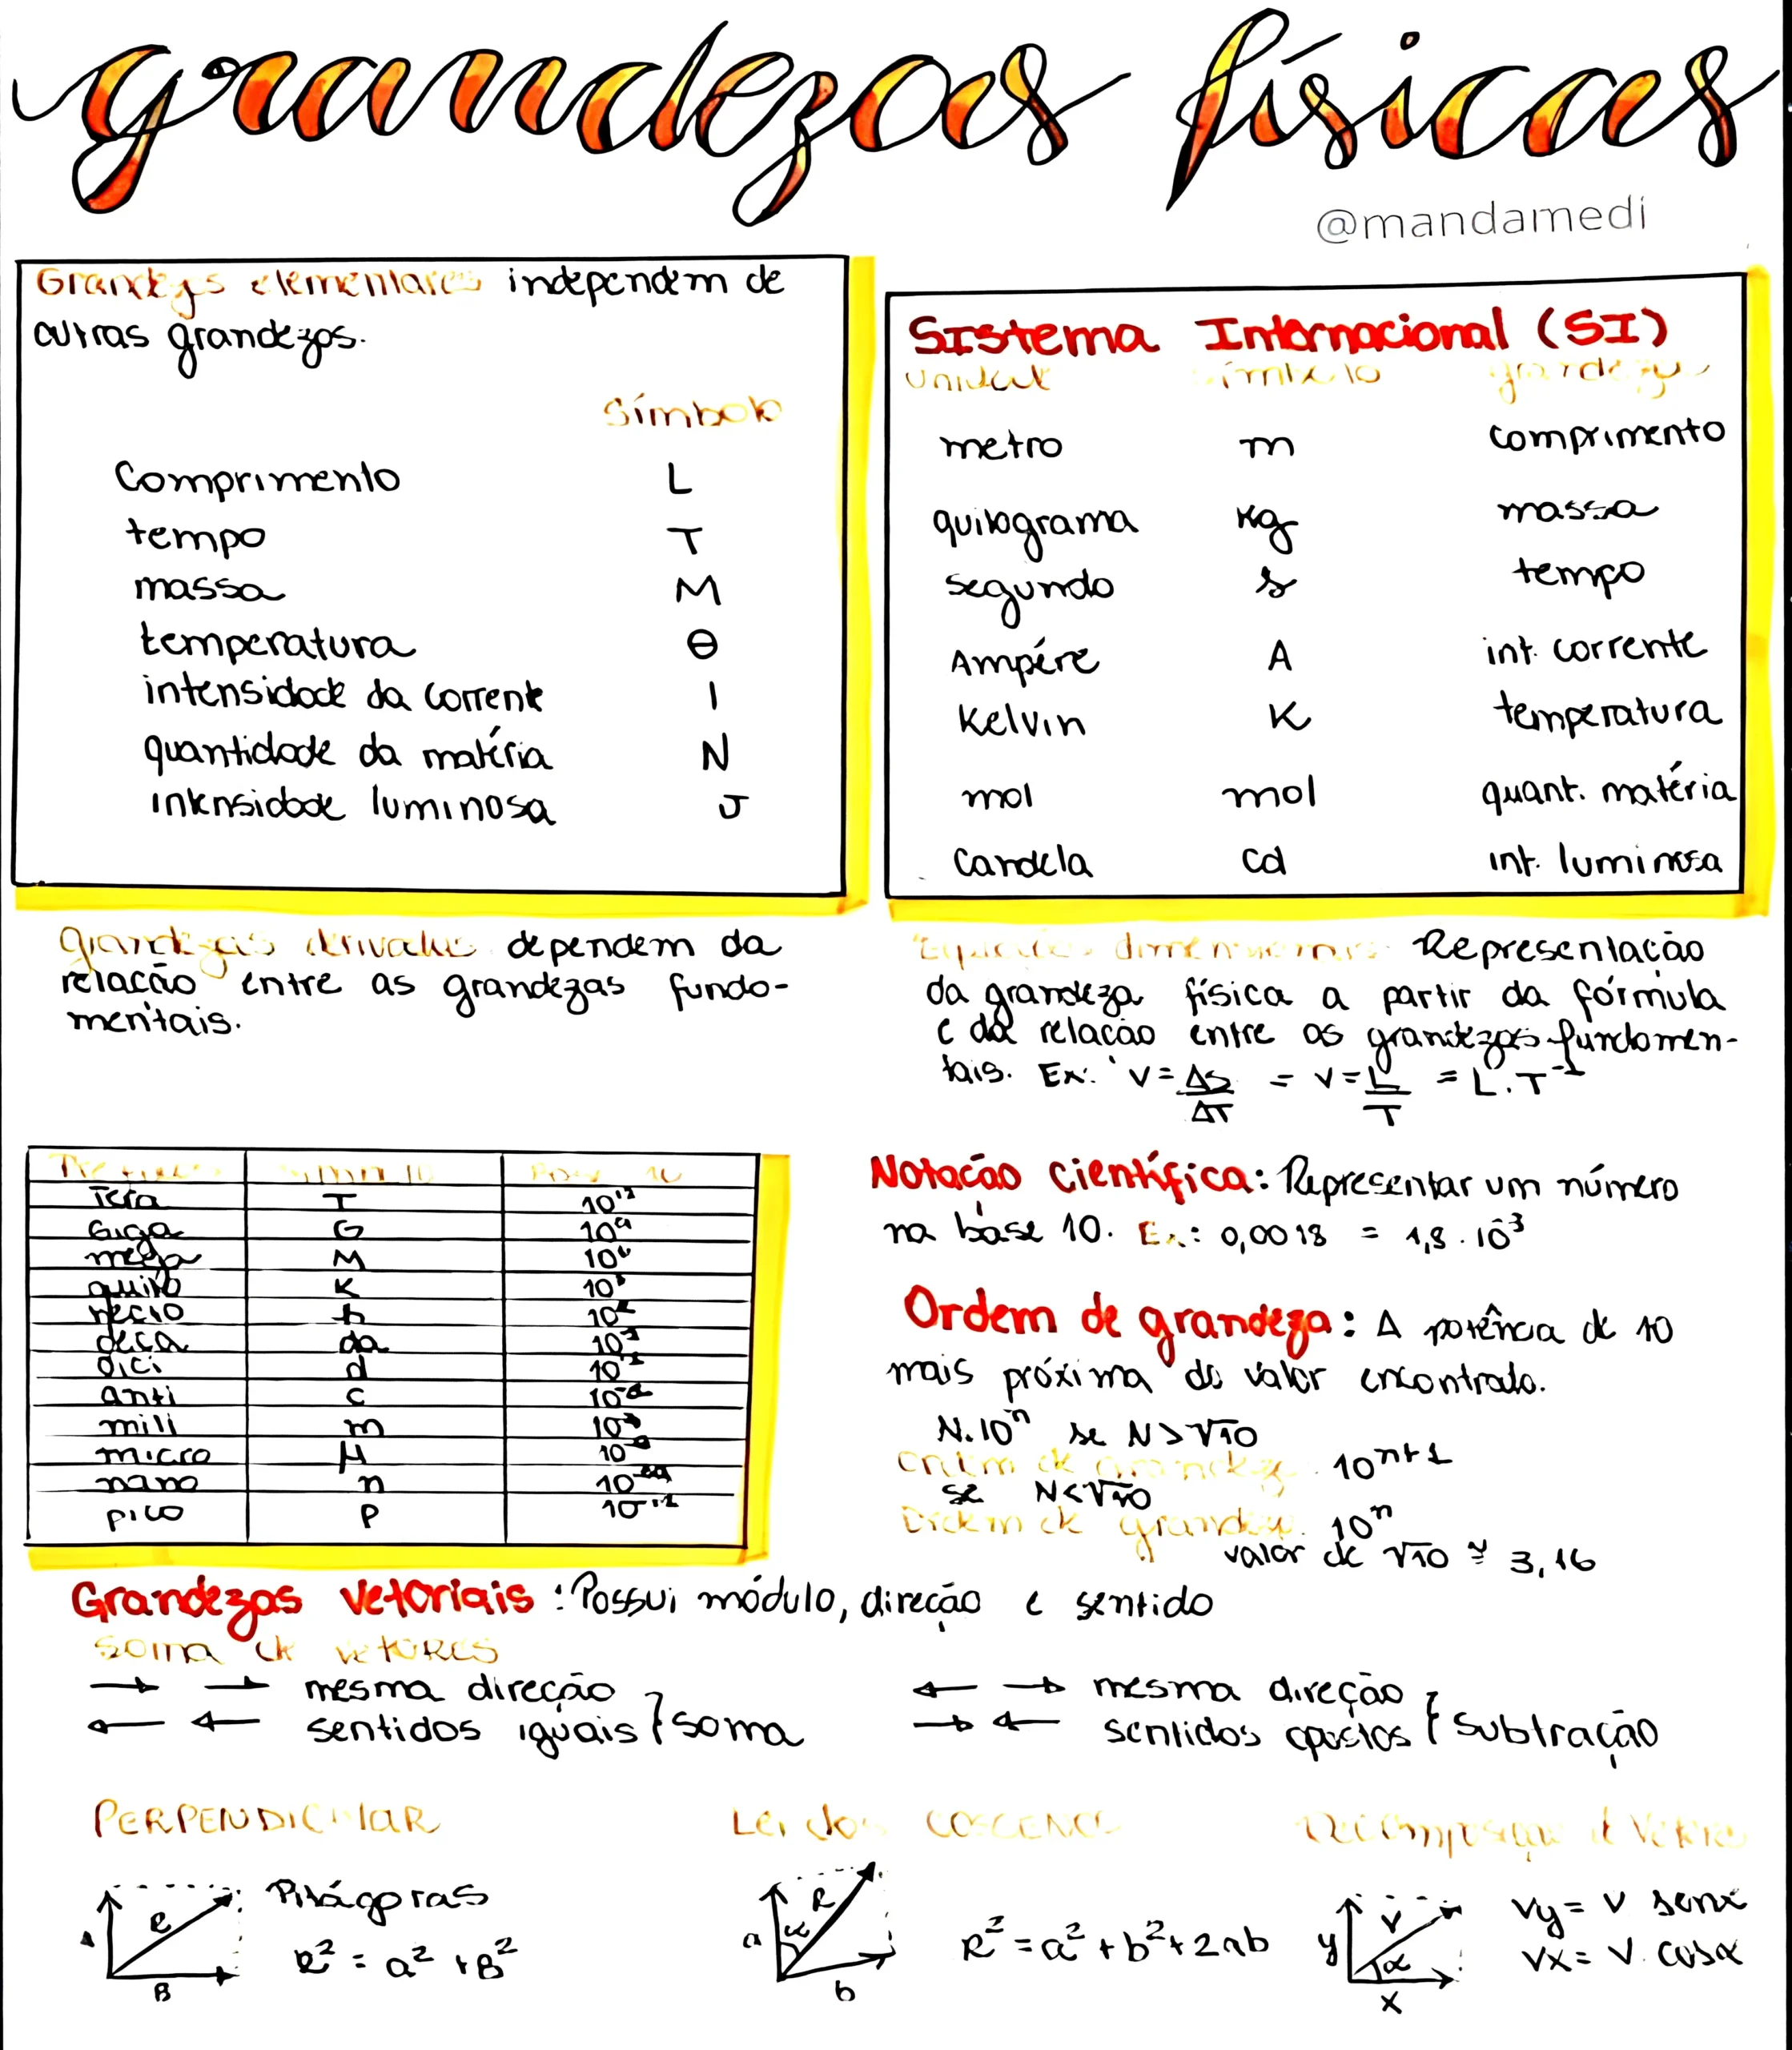 grandezas físicas
@mandamedi
Grandezas elementares independem de
outras grandezas.
Símbolo
Comprimento L
tempo T
massa M
temperatura θ
intensidade da corrente I
quantidade da matéria N
intensidade luminosa J
Sistema Internacional (SI)
unidade símbolo grandeza
metro m comprimento
quilograma Kg massa
segundo s tempo
Ampére A int. corrente
Kelvin K temperatura
mol mol quant. matéria
Candela Cd int. luminosa
grandezas derivadas dependem da
relação entre as grandezas funda-
mentais.
Equações dimensionais: Representação
da grandeza física a partir da fórmula
e da relação entre as grandezas fundamen-
tais. Ex: V = ΔS/ΔT = V = L/T = L.T⁻¹
Tera T 10¹²
Giga G 10⁹
mega M 10⁶
quilo K 10³
hecto h 10²
deca da
deci d
centi c 10⁻²
mili m
micro μ
nano n
pico p 10⁻¹²
Notação científica: Representar um número
na base 10. Ex: 0,0018 = 1,8 . 10⁻³
Ordem de grandeza: A potência de 10
mais próxima do valor encontrado.
N.10ⁿ se N>√10
Ordem de grandeza: 10ⁿ⁺¹
se N<√10
Ordem de grandeza: 10ⁿ
valor de √10 ≅ 3,16
Grandezas Vetoriais: Possui módulo, direção e sentido
Soma de vetores
→ → mesma direção
← ← sentidos iguais } soma
← → mesma direção
→ ← sentidos opostos } subtração
PERPENDICULAR
R
B
Pitágoras
R² = a² + B²
Lei dos
a R
b
R² = a² + b² + 2ab
Decomposição de Vetores
y V α
x
Vy = V
Vx = V. cosα